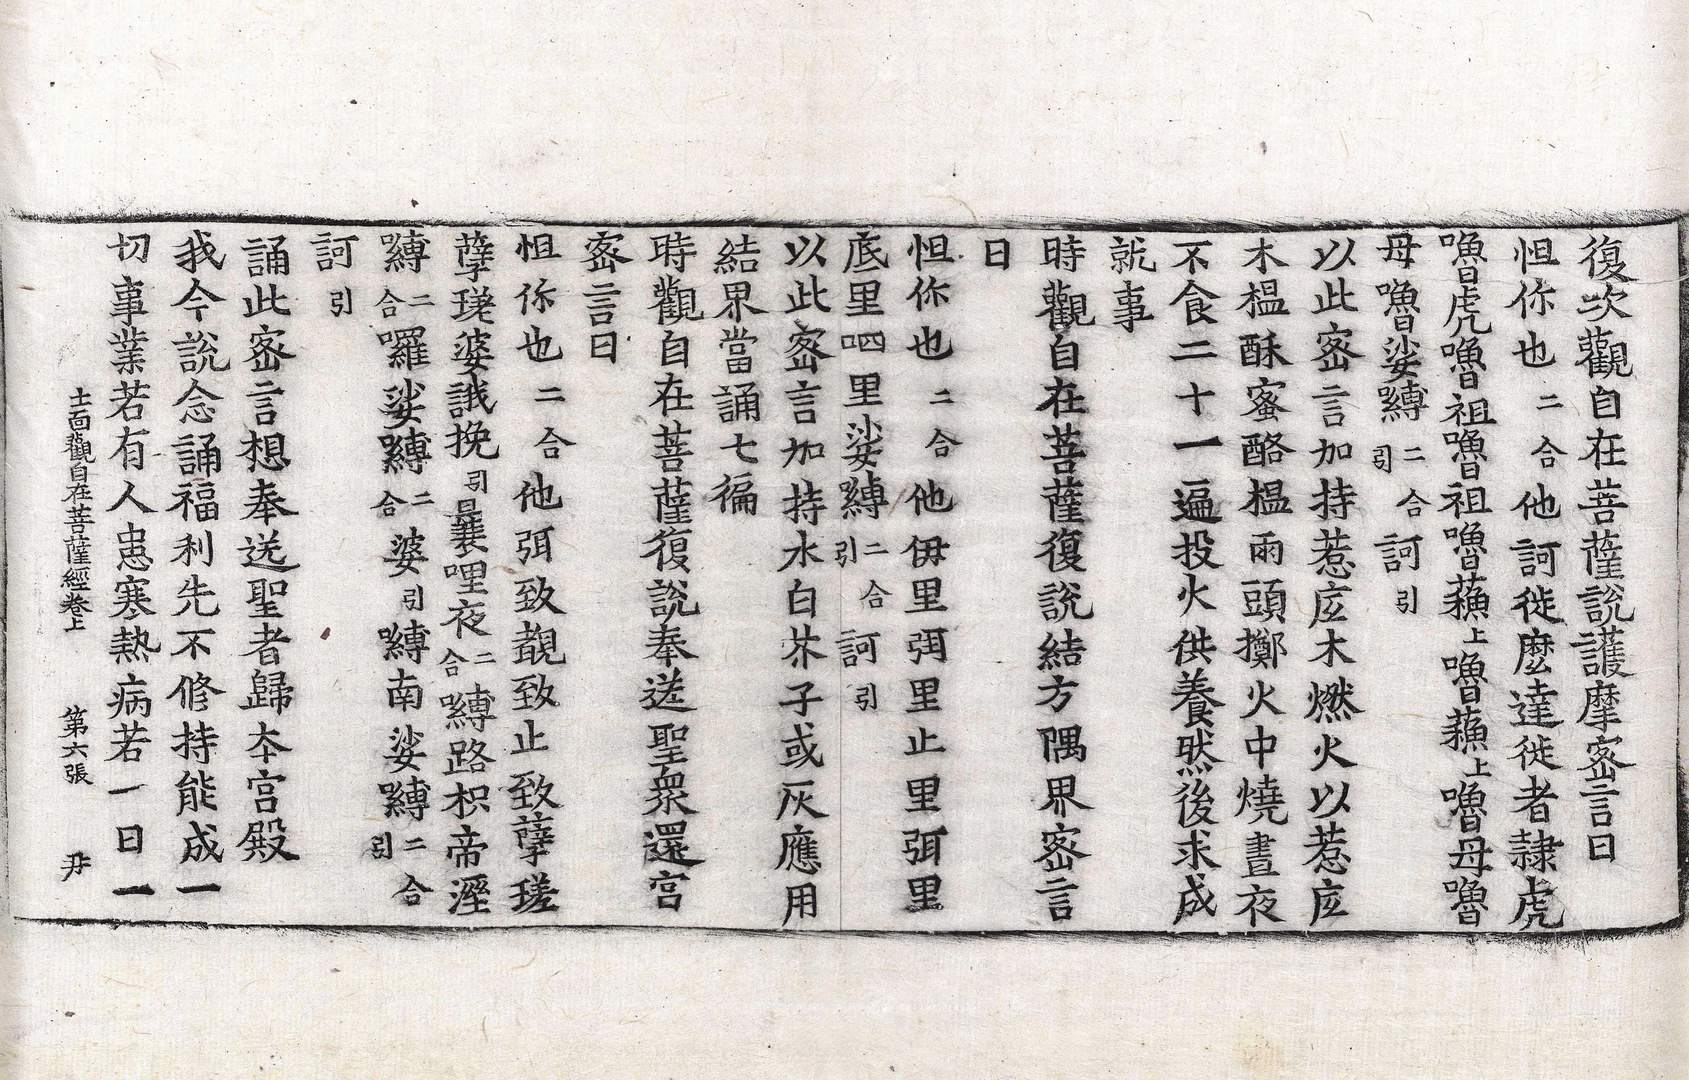 復次觀自在菩薩說護摩密言曰
怛你也二合他訶徙麽達徙者隷虎
嚕虎嚕祖嚕祖嚕蘓上嚕蘓上嚕母嚕
母嚕娑嚩二合引訶引
以此密言加持惹㡳木燃火以惹㡳
木榅酥蜜酪榅兩頭擲火中燒晝夜
不食二十一遍投火供養然後求成
就事
時觀自在菩薩復說結方隅界密言
曰
怛你也二合他伊里弭里止里弭里
底里呬里娑嚩二合引訶引
以此密言加持水白芥子或灰應用
結界當誦七徧
時觀自在菩薩復說奉送聖衆還宮
密言曰
怛你也二合他弭致覩致止致孽瑳
孽瑳婆誐挽引曩哩夜二合嚩路枳帝溼
嚩二合囉娑嚩二合婆引嚩南娑嚩二合引
訶引
誦此密言想奉送聖者歸本宮殿
我今說念誦福利先不修持能成一
切事業若有人患寒熱病若一日一
十一面觀自在菩薩經卷上 第六張 尹